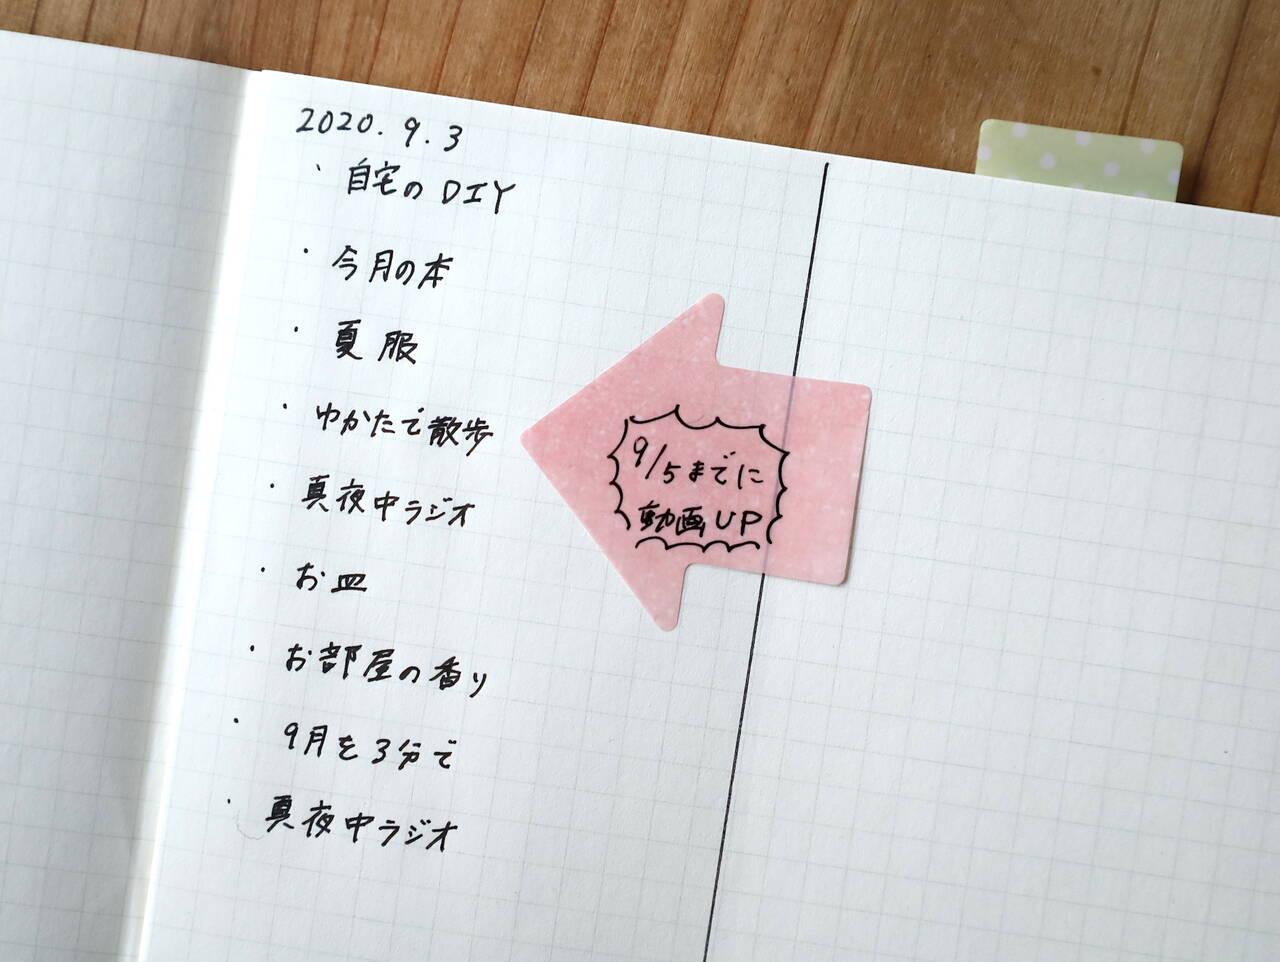 2020.9.3
・自宅のDIY
・今月の本
・夏服
・ゆかたで散歩
・真夜中ラジオ
・お皿
・お部屋の香り
・9月を3分で
・真夜中ラジオ
9/5までに
動画UP